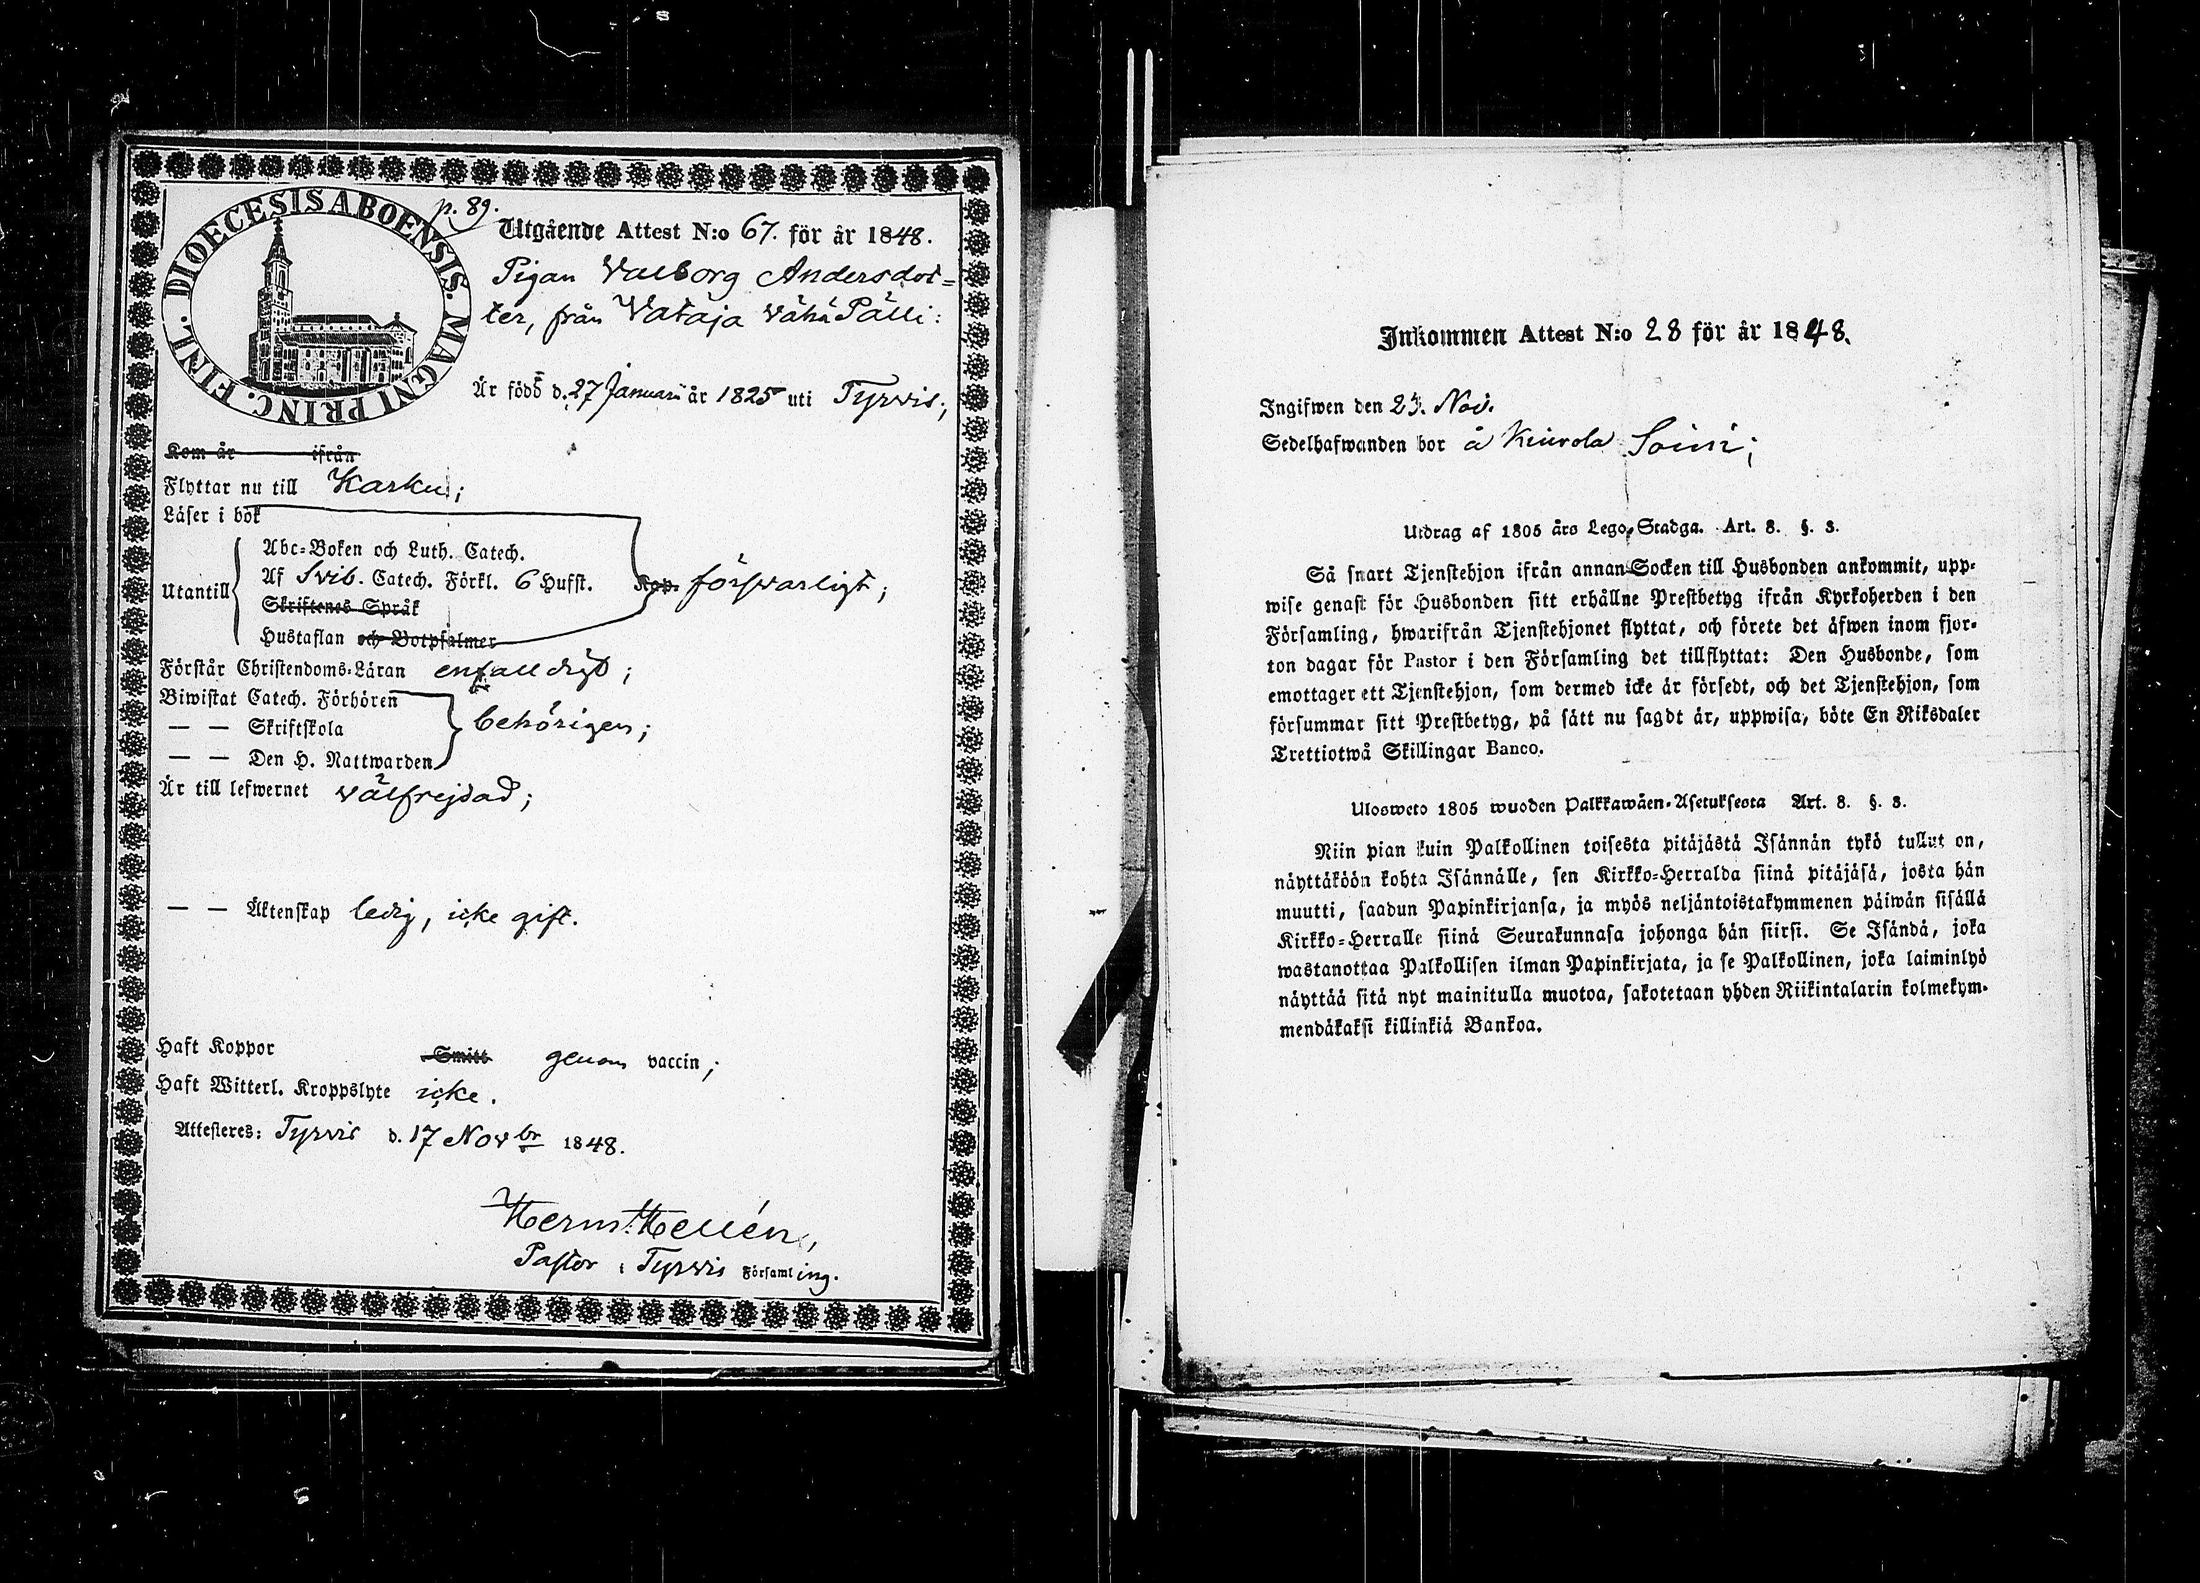 DIOECESIS ABOENSIS. MAGNI PRINC. FINL.
p. 89.
Utgående Attest N:o 67. för år 1848.
Pigan Valborg Andersdot=
ter, från Vataja Vähä Pälli:
Är född d. 27 Januari år 1825 uti Tyrvis;
Kom år ifrån
Flyttar nu till Karku;
Läser i bok
Utantill
Abc-Boken och Luth. Catech.
Af Svib. Catech. Förkl. 6 Hufst.
Skriftenes Språk
Hustaflan och Botpsalmer
Kap. försvarligt;
Förstår Christendoms-Läran enfalldigt;
Biwistat Catech. Förhören
— — Skriftskola
— — Den H. Nattwarden
behörigen;
Är till lefwernet välfrejdad;
— — Äktenskap ledig, icke gift.
Haft Koppor Smitt genom vaccin;
Haft Witterl. Kroppslyte icke.
Attesteres: Tyrvis d. 17 Novbr 1848.
Herm. Hellén,
Pastor i Tyrvis Församling.
Inkommen Attest N:o 28 för år 1848.
Ingifwen den 23. Nov.
Sedelhafwanden bor å Kiurola Soini;
Utdrag af 1805 års Lego-Stadga. Art. 8. §. 3.
Så snart Tjenstehjon ifrån annan Socken till Husbonden ankommit, upp-
wise genast för Husbonden sitt erhållne Prestbetyg ifrån Kyrkoherden i den
Församling, hwarifrån Tjenstehjonet flyttat, och förete det äfwen inom fjor-
ton dagar för Pastor i den Församling det tillflyttat: Den Husbonde, som
emottager ett Tjenstehjon, som dermed icke är försedt, och det Tjenstehjon, som
försummar sitt Prestbetyg, på sätt nu sagdt är, uppwisa, böte En Riksdaler
Trettiotwå Skillingar Banco.
Ulosweto 1805 wuoden Palkkawäen-Asetuksesta Art. 8. §. 3.
Niin pian kuin Palkollinen toisesta pitäjästä Isännän tykö tullut on,
näyttäköön kohta Isännälle, sen Kirkko-Herralda siinä pitäjäsä, josta hän
muutti, saadun Papinkirjansa, ja myös neljäntoistakymmenen päiwän sisällä
Kirkko-Herralle siinä Seurakunnasa johonga hän siirsi. Se Isändä, joka
wastanottaa Palkollisen ilman Papinkirjata, ja se Palkollinen, joka laiminlyö
näyttää sitä nyt mainitulla muotoa, sakotetaan yhden Riikintalarin kolmekym-
mendäkaksi killinkiä Bankoa.